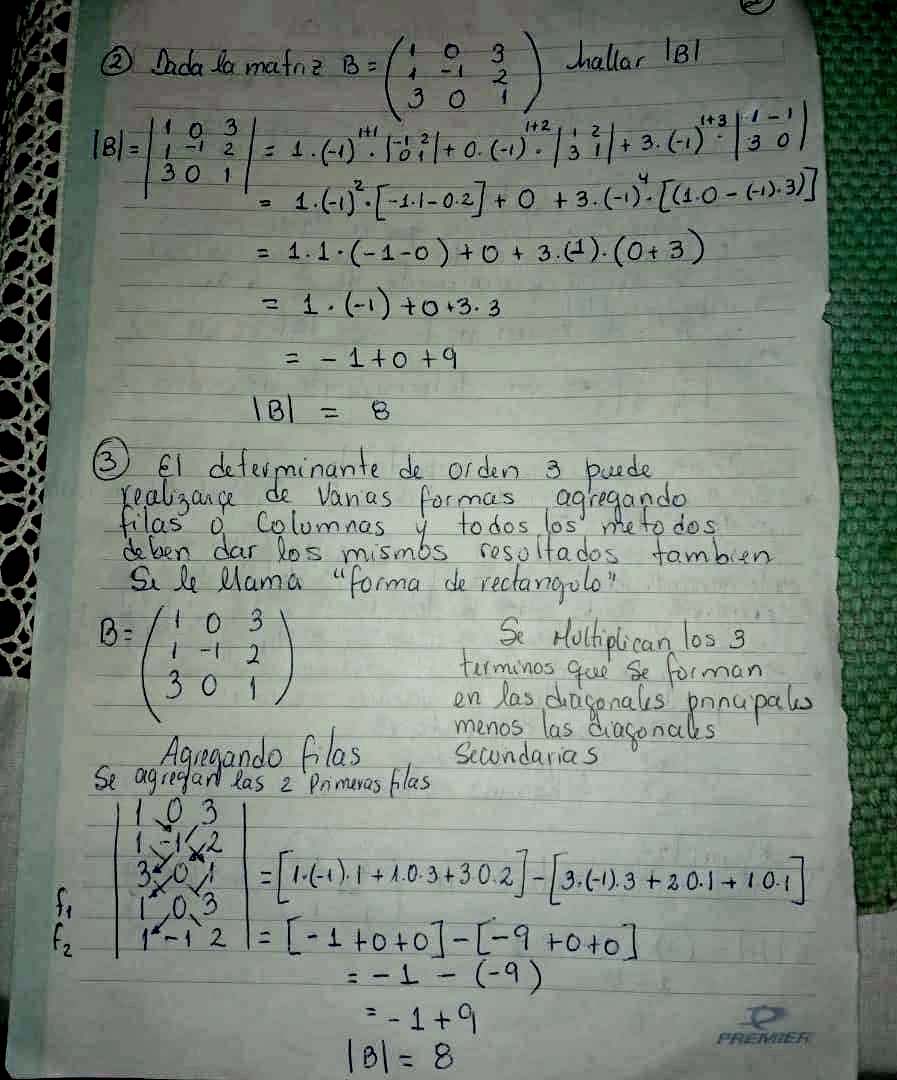 ② Dada la matriz B = ( 1 0 3 hallar |B|
1 -1 2
3 0 1 )
|B| = | 1 0 3 | = 1·(-1)^1+1 · | -1 2 | + 0·(-1)^1+2 · | 1 2 | + 3·(-1)^1+3 · | 1 -1 |
1 -1 2 0 1 3 1 3 0
3 0 1
= 1·(-1)²·[-1·1-0·2] + 0 + 3·(-1)⁴·[(1·0-(-1)·3)]
= 1·1·(-1-0) + 0 + 3·(1)·(0+3)
= 1·(-1) + 0 + 3·3
= -1 + 0 + 9
|B| = 8
③ El determinante de orden 3 puede
realizarce de varias formas agregando
filas o Columnas y todos los metodos
deben dar los mismos resoltados tambien
Se le llama "forma de rectangulo"
B = ( 1 0 3
1 -1 2
3 0 1 )
Se Multiplican los 3
terminos que se forman
en las diagonales principales
menos las diagonales
Secundarias
Agregando filas
Se agregan las 2 Primeras filas
1 0 3
1 -1 2
3 0 1 = [1·(-1)·1 + 1·0·3 + 3·0·2] - [3·(-1)·3 + 2·0·1 + 1·0·1]
f₁ 1 0 3
f₂ 1 -1 2 = [-1+0+0] - [-9+0+0]
= -1 - (-9)
= -1 + 9
|B| = 8
PREMIER